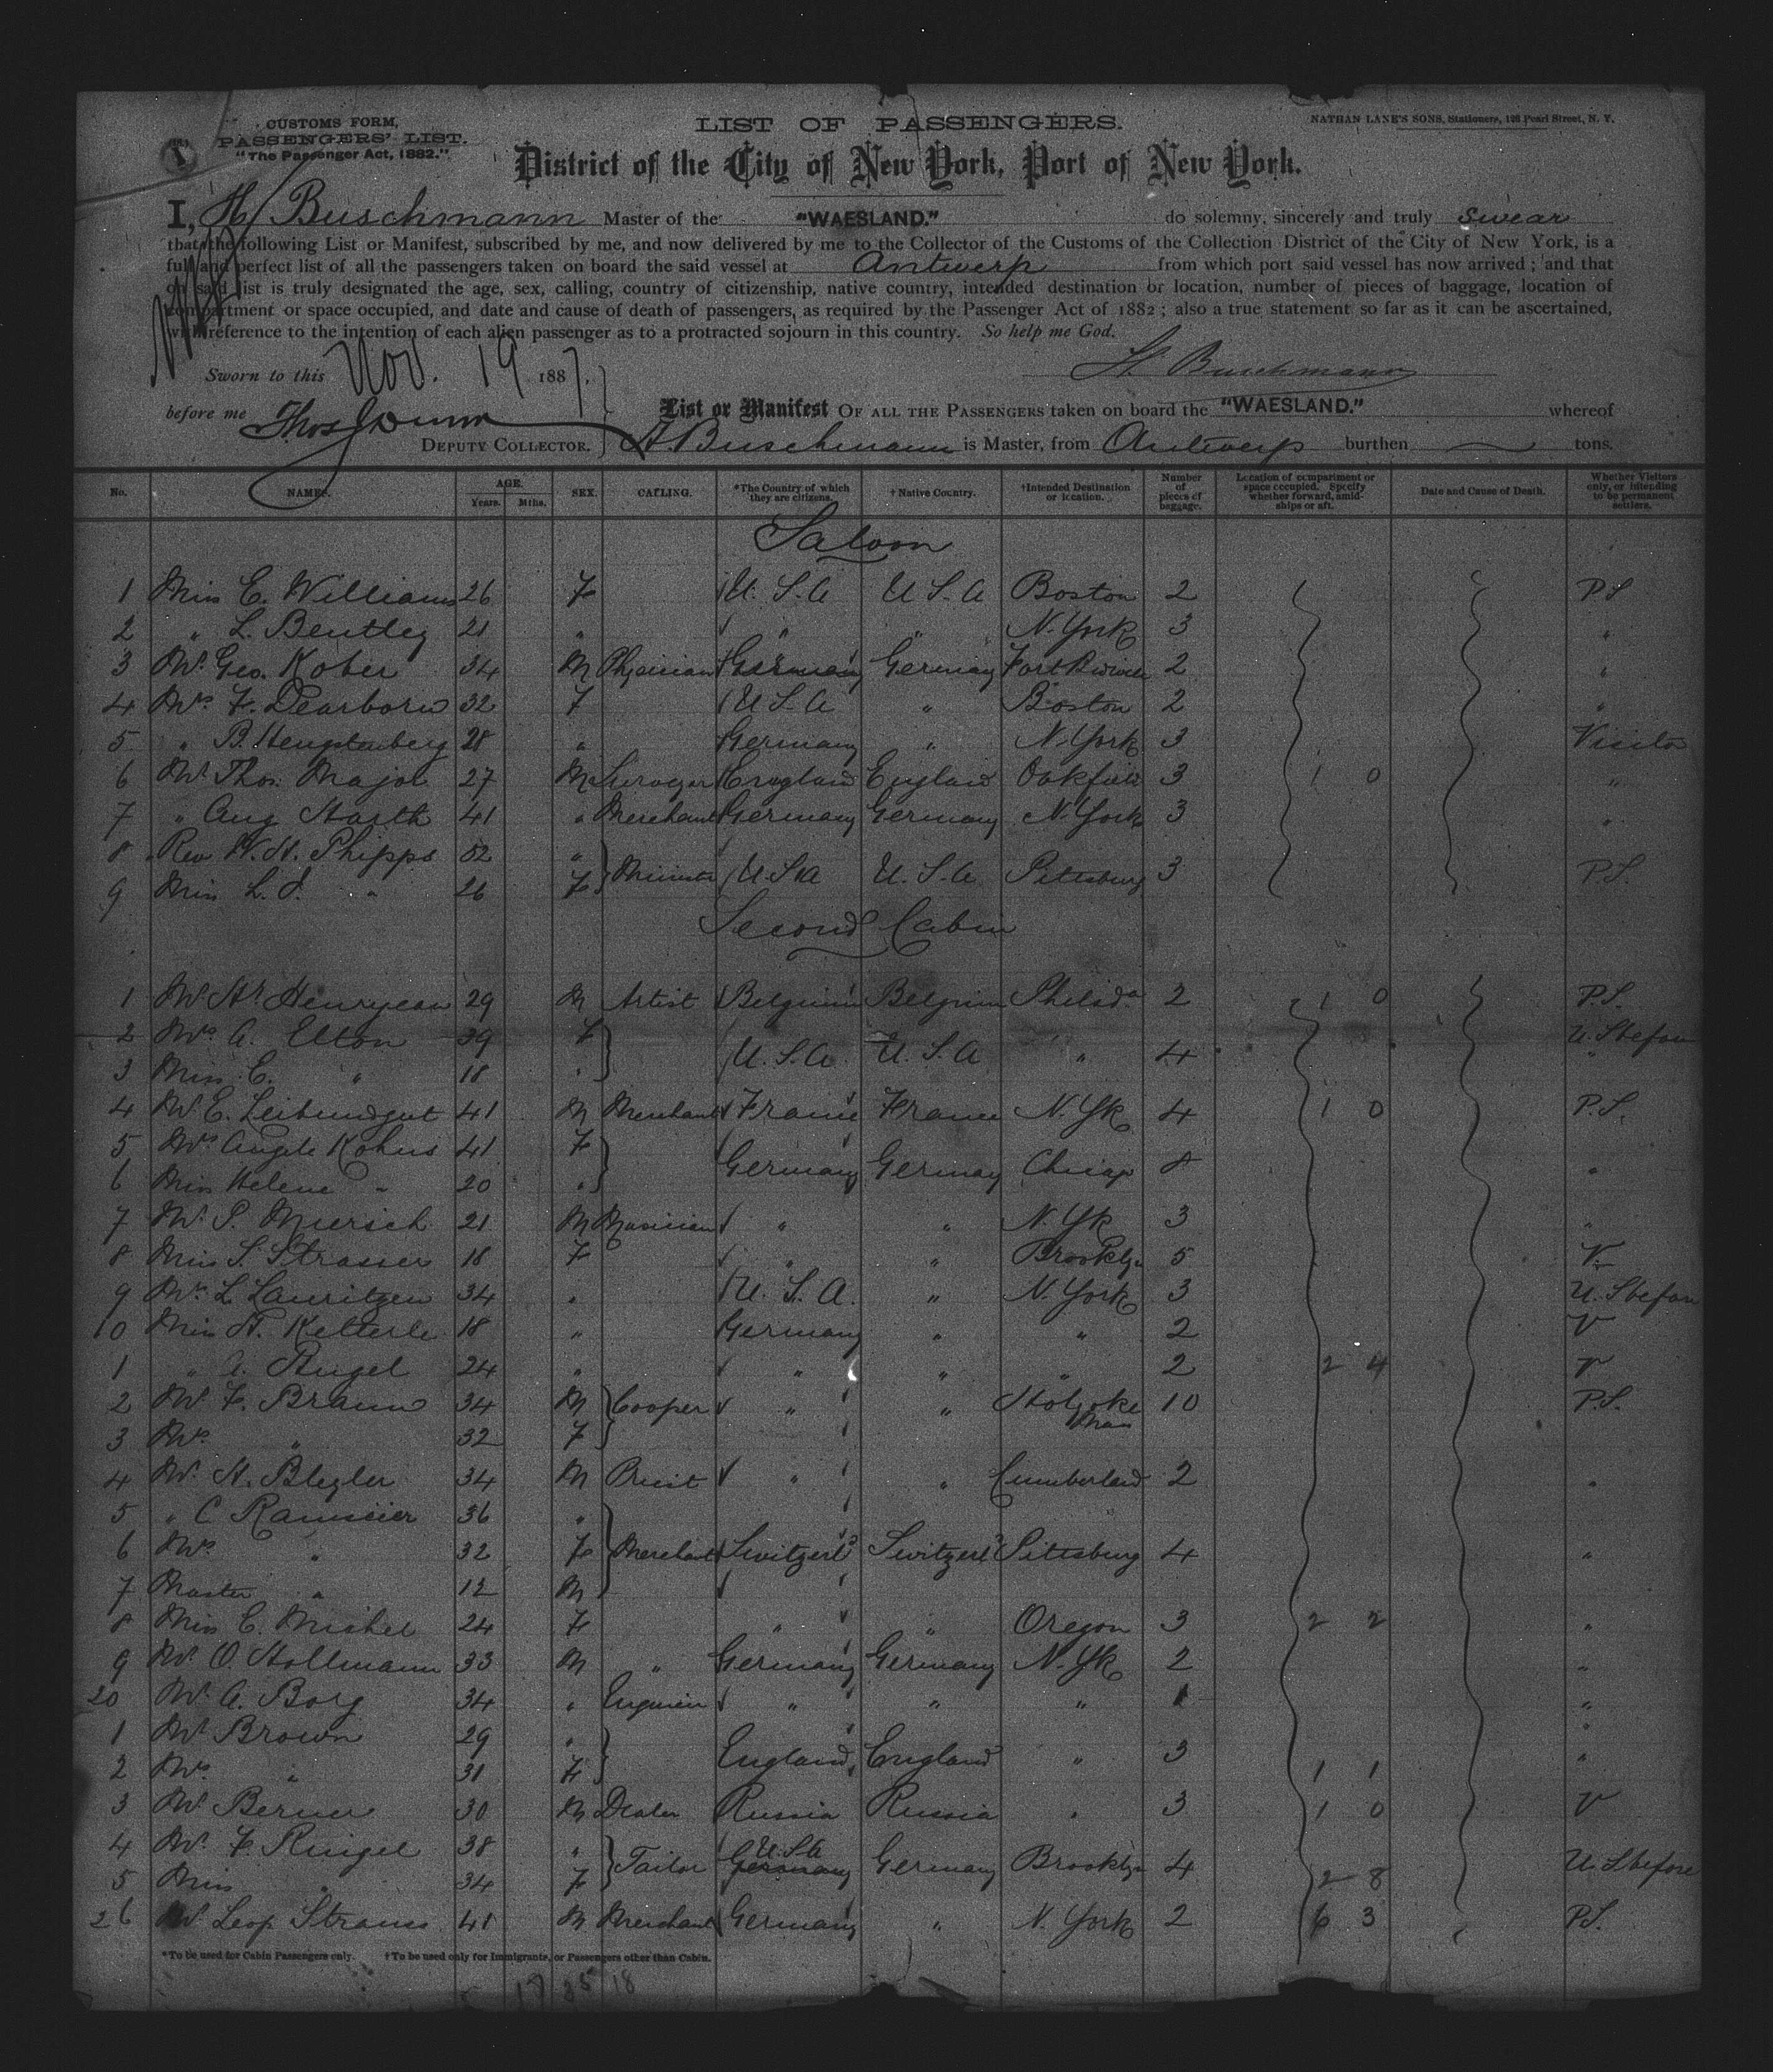 CUSTOMS FORM,
PASSENGERS' LIST.
"The Passenger Act, 1882."
LIST OF PASSENGERS.
NATHAN LANE'S SONS, Stationers, 126 Pearl Street, N. Y.
District of the City of New York, Port of New York.
I, H Buschmann Master of the "WAESLAND." do solemny, sincerely and truly swear
that the following List or Manifest, subscribed by me, and now delivered by me to the Collector of the Customs of the Collection District of the City of New York, is a
full and perfect list of all the passengers taken on board the said vessel at Antwerp from which port said vessel has now arrived; and that
on said list is truly designated the age, sex, calling, country of citizenship, native country, intended destination or location, number of pieces of baggage, location of
compartment or space occupied, and date and cause of death of passengers, as required by the Passenger Act of 1882; also a true statement so far as it can be ascertained,
with reference to the intention of each alien passenger as to a protracted sojourn in this country. So help me God.
H Buschmann
Sworn to this Nov. 19 1887.
before me Thos J Dunn
List or Manifest OF ALL THE PASSENGERS taken on board the "WAESLAND." whereof
DEPUTY COLLECTOR. H. Buschmann is Master, from Antwerp burthen tons.
No. NAMES. AGE. Years. Mths. SEX. CALLING. *The Country of which they are citizens. †Native Country. †Intended Destination or location. Number of pieces of baggage. Location of compartment or space occupied. Specify whether forward, amidships or aft. Date and Cause of Death. Whether Visitors only, or intending to be permanent settlers.
Saloon
1 Miss E. Williams 26 F U. S. A U S. A Boston 2 P S
2 " L. Bentley 21 " " " N. York 3 "
3 Mr. Geo. Kober 34 M Physician Germany Germany Fort 2 "
4 Mrs. F. Dearborn 32 F U S. A " Boston 2 "
5 " B. Hengstenberg 28 " Germany " N. York 3 Visitor
6 Mr. Thos. Major 27 M England England Oakfield 3 1 0 "
7 " Aug Harth 41 " Merchant Germany Germany N. York 3 "
8 Rev W. H. Phipps 52 "
9 Miss L. J. " 26 F Minister U. S. A U. S. A. Pittsburg 3 P. S.
Second Cabin
1 Mr. Hy. Henryean 29 M Artist Belgium Belgium Philada 2 1 0 P. S.
2 Mrs. A. Elton 39 F U. S. A. U. S. A " 4 U. S before
3 Miss E. " 18 " "
4 Mr. E. Leibundgut 41 M Merchant France France N. Yk 4 1 0 P. S.
5 Mrs Angele Kohus 41 F Germany Germany Chicago 8 "
6 Miss Helene " 20 "
7 Mr. P. Miersch 21 M Musician " " N. Yk 3 "
8 Miss S. Strasser 18 F " " Brooklyn 5 V.
9 Mrs. L. Lauritzen 34 " U. S. A. " N. York 3 U. S before
10 Miss A. Ketterle 18 " Germany " " 2 V
1 " A. Rugel 24 " " " " 2 2 4 V
2 Mr. F. Braun 34 M Cooper " " Holyoke Mass 10 P. S.
3 Mrs. " 32 F
4 Mr. H. Blegler 34 M Priest " " Cumberland 2 "
5 " C Ramseier 36 "
6 Mrs. " 32 F Merchant Switzerld Switzerld Pittsburg 4 "
7 Master " 12 M
8 Miss E. Michel 24 F " " Oregon 3 2 2 "
9 Mr. O. Hollmann 33 M " Germany Germany N. Yk 2 "
20 Mr. A. Borg 34 " Engineer " " " 1 "
1 Mr Brown 29 " England England " 3 "
2 Mrs. " 31 F 1 1 "
3 Mr Berner 30 M Dealer Russia Russia " 3 1 0 V
4 Mr. F. Ringel 38 " Tailor U. S. A Germany Germany Brooklyn 4 U. S before
5 Miss " 34 F 2 8
26 Mr. Leop Strauss 41 M Merchant Germany " N. York 2 6 3 P. S.
*To be used for Cabin Passengers only. †To be used only for Immigrants, or Passengers other than Cabin.
17 35 18